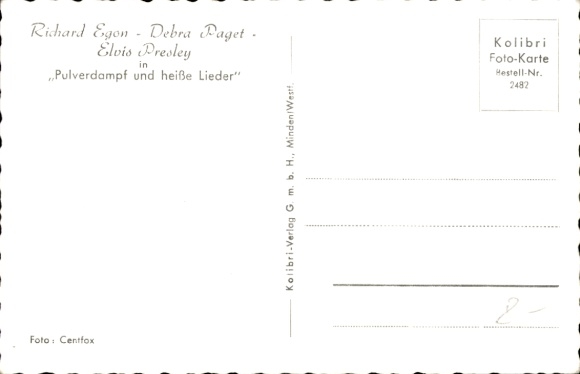 Richard Egon - Debra Paget -
Elvis Presley
in
„Pulverdampf und heiße Lieder"
Kolibri
Foto-Karte
Bestell-Nr.
2482
Kolibri-Verlag G. m. b. H., Minden/Westf.
8-
Foto: Centfox